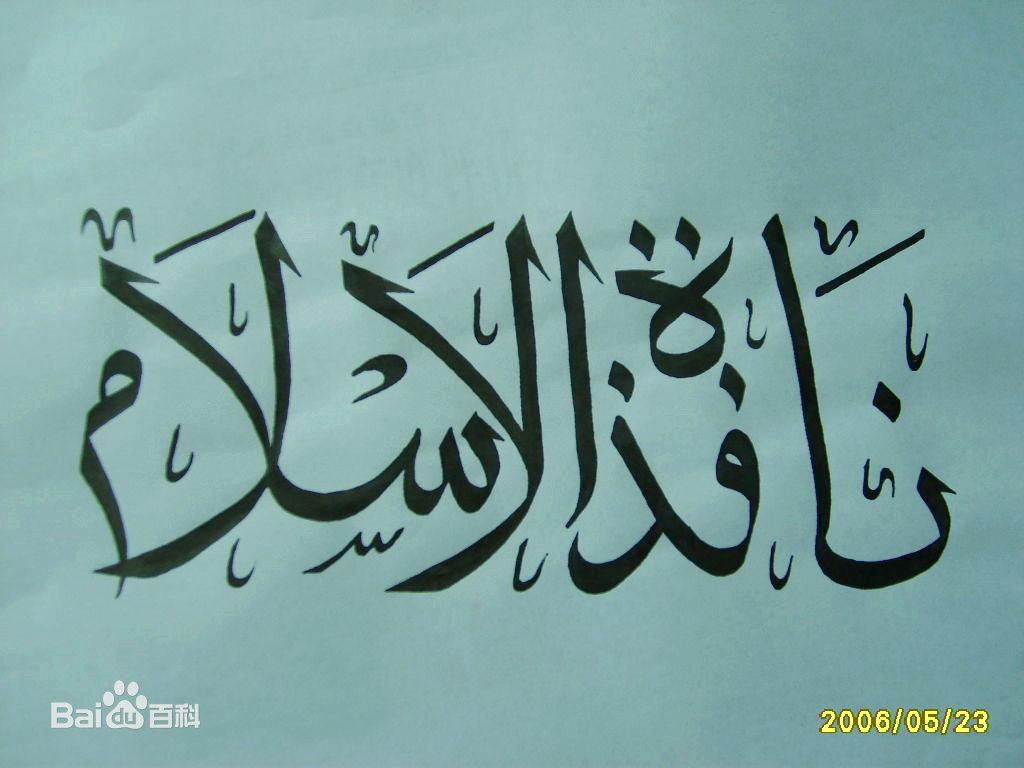 نافذة الإسلام
Bai du 百科
2006/05/23